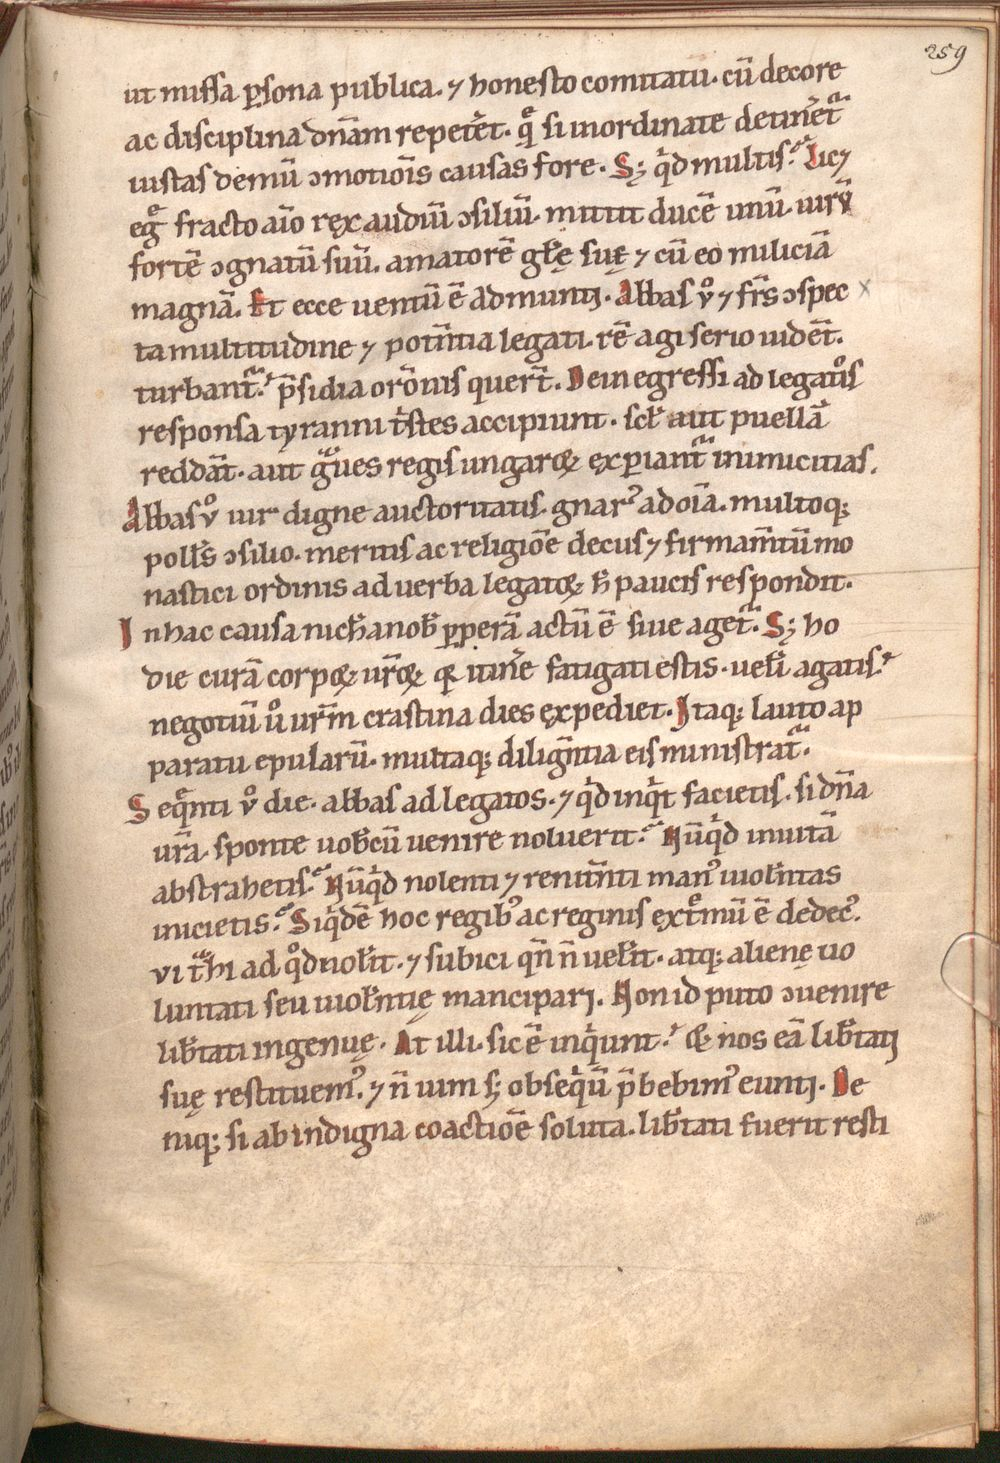 259
ut missa p̲sona publica. ⁊ honesto comitatu. cū decore
ac disciplina dn̄am repeteͬt. qͣ si inordinate detineͬt᷑
iustas demū ꝯmotiōis causas fore. Sꝫ qͥd multis? Lic⁊
egͤ fracto aīo rex audiū ꝯsiliū. mittit ducē unū. uirū
fortē ꝯgnatū suū. amatorē gl̄ę suę ⁊ cū eo miliciā
magnā. Et ecce uentū ē Admunti. Abbas ů ⁊ fr̄s ꝯspec
ta multitudine ⁊ potn̄tia legati. rē agi serio uidēt.
turbant᷑. p̄sidia orōnis quer̄t. Dein egressi ad legatos
responsa tyranni tͥstes accipiunt. scł aut puellā
reddāt. aut gͣues regis ungaroꝝ exꝑiant᷑ inimicitias.
Abbas ů uir digne auctoritatis. gnarꝰ ad oīa. multoqꝫ
poll̄s ꝯsilio. meritis ac religiōe decus ⁊ firmam̄tū mo
nastici ordinis ad uerba legatoꝝ h̄ paucis respondit.
In hac causa nich̄ a nob̄ ꝑperā actū ē siue aget᷑. Sꝫ ho
die curā corpoꝝ ur̄oꝝ qꝛ itin̄e fatigati estis. uel̄i agatis.
negotiū ů ur̄m crastina dies expediet. Itaqꝫ lauto ap
paratu epularū. multaqꝫ dilign̄tia eis ministrat᷑.
Seqͣnti ů die. abbas ad legatos. ⁊ qͥd inqͥt facietis. si dn̄a
ur̄a. sponte uob̄cū uenire noluerit? Nūqͥd inuitā
abstrahetis? Nūqͥd nolenti ⁊ renitn̄ti manꝰ uiolēntas
inicietis? Siqͥdē hoc regibꝰ ac reginis extͤmū ē dedecꝰ.
vi tͣhi ad qͦd nol̄it. ⁊ subici qn̄ n̄ uel̄it. atqꝫ alienę uo
luntati seu uiol̄ntię mancipari. Non id puto ꝯuenire
lib̄tati ingenuę. At illi. sic ē inqͥunt. Et nos eā lib̄tati
suę restituemꝰ. ⁊ n̄ uim sꝫ obseqͥū p̄bebimꝰ eunti. De
niqꝫ si ab indigna coactiōe soluta. lib̄tati fuerit resti